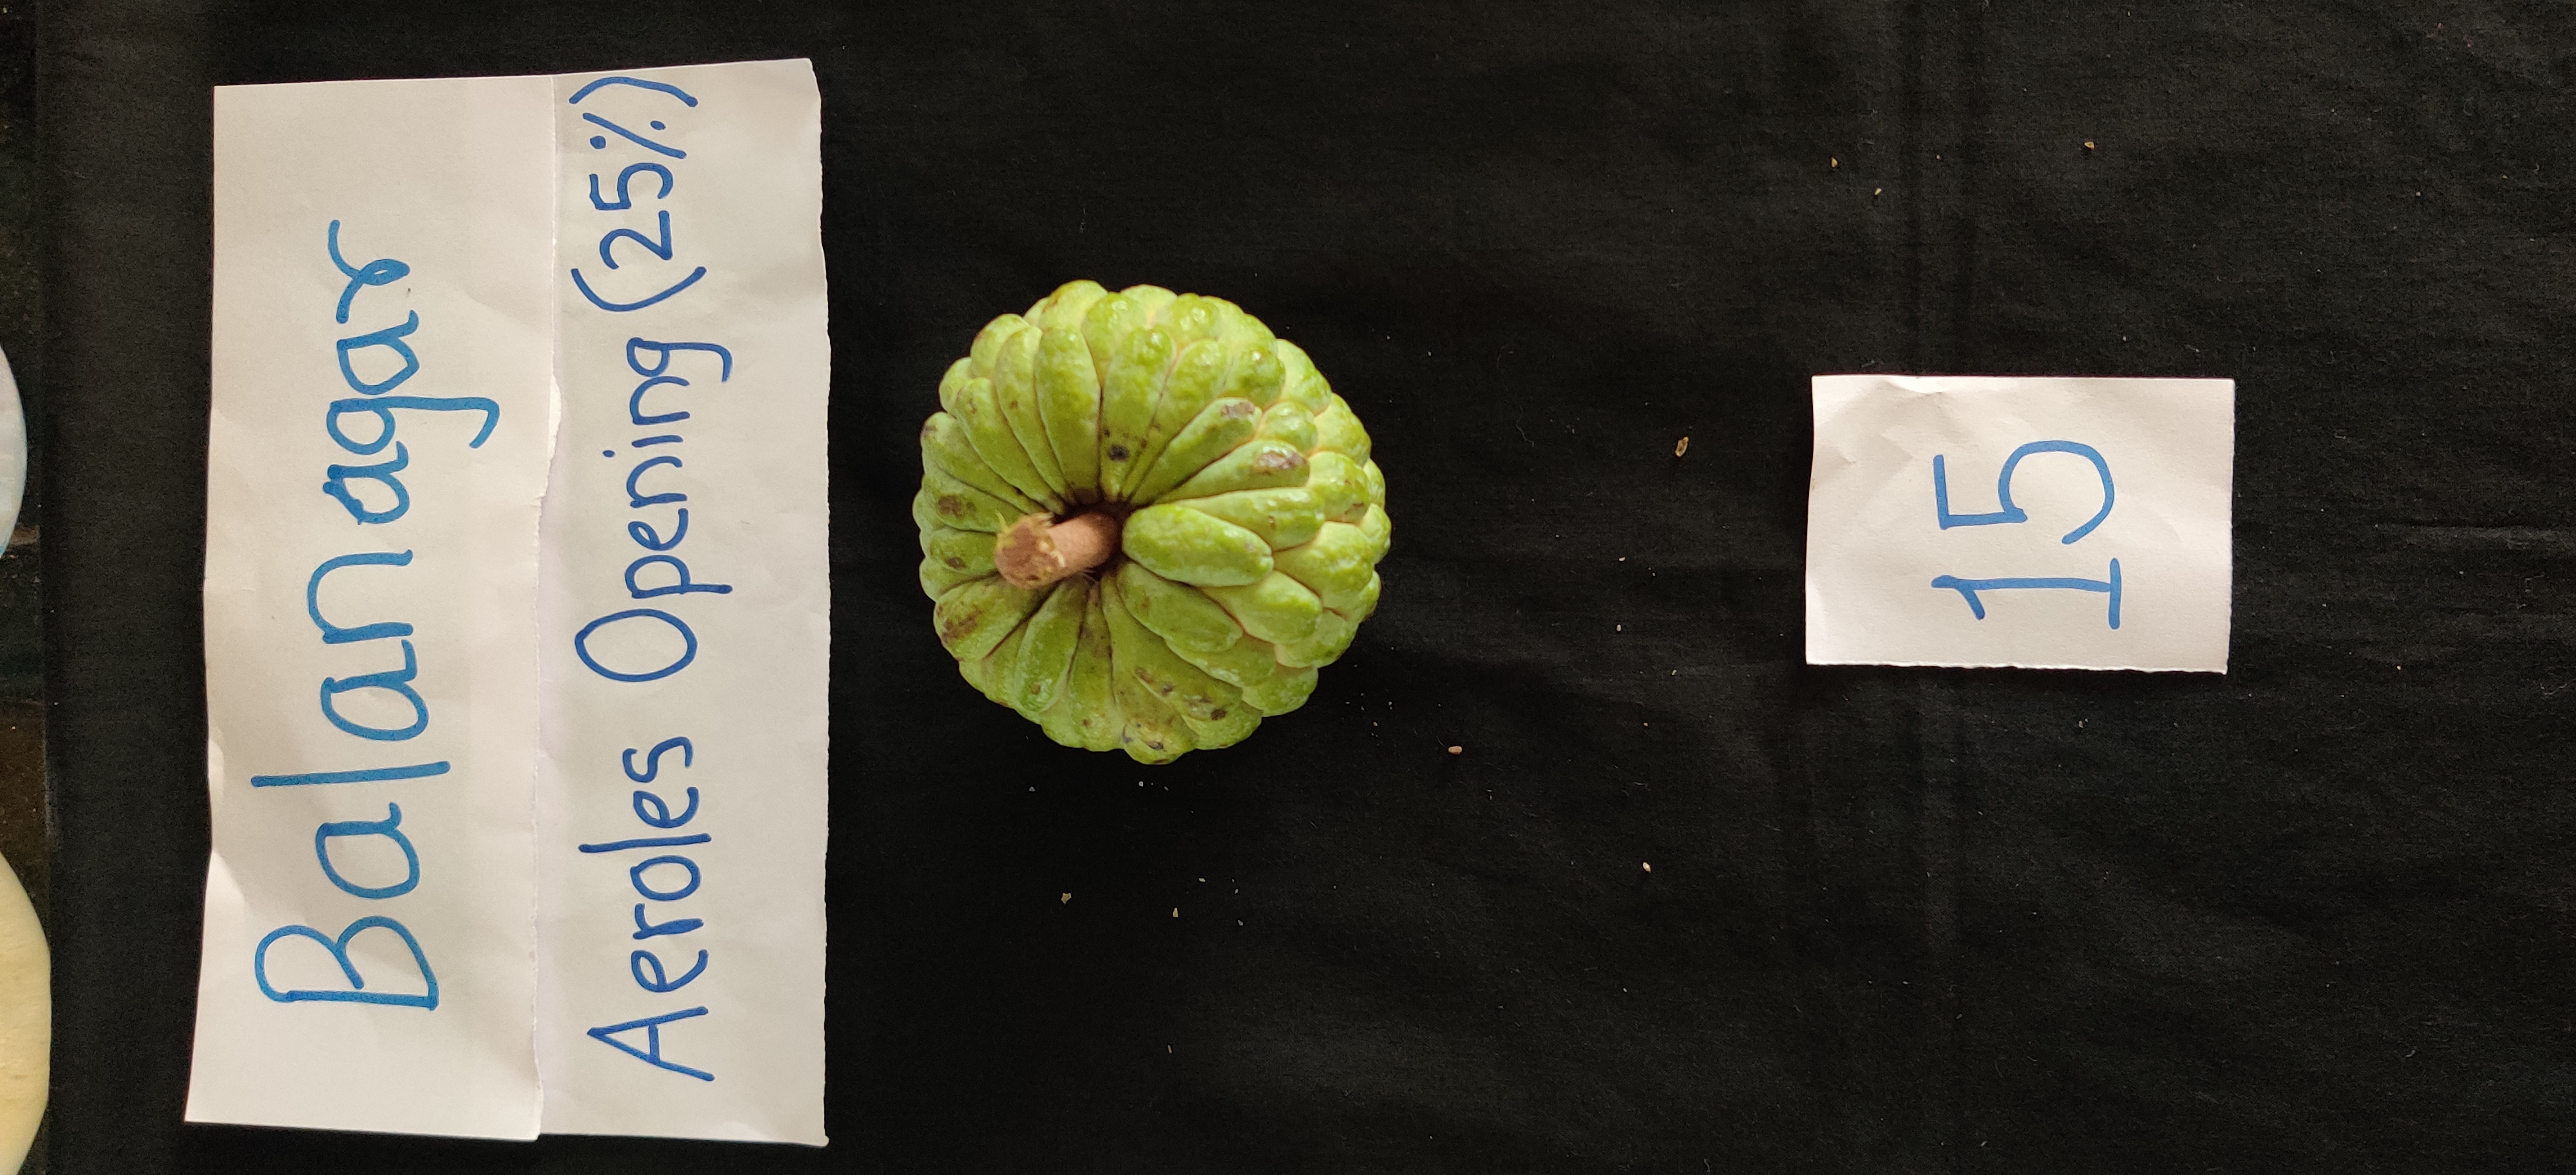 Balanagar
Aeroles Opening (25%)
15